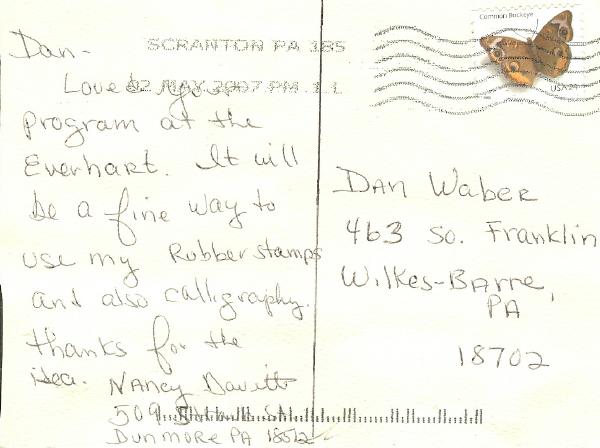 Dan-
Loved your
program at the
Everhart. It will
be a fine way to
use my Rubber stamps
and also calligraphy.
thanks for the
idea. Nancy Davitt
509
Dunmore PA 18512
SCRANTON PA 185
02 MAY 2007 PM 1 L
Common Buckeye
USA 24
Dan Waber
463 So. Franklin
Wilkes-Barre,
PA
18702